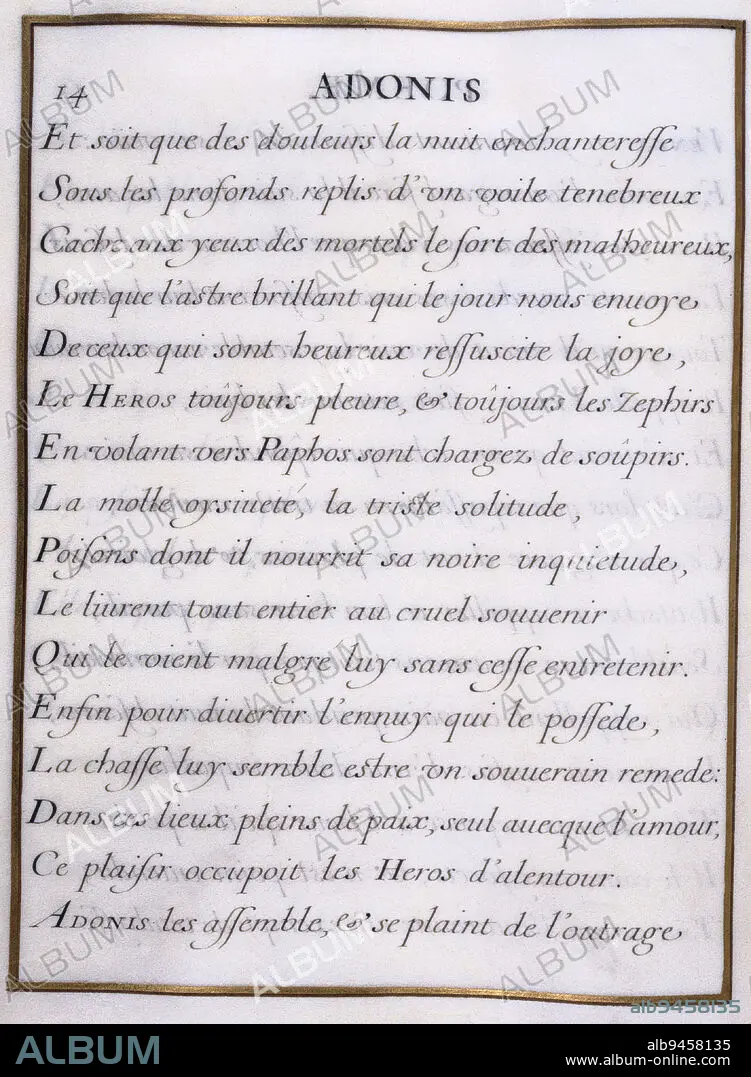 14 ADONIS
Et soit que des douleurs la nuit enchanteresse
Sous les profonds replis d'vn voile tenebreux
Cache aux yeux des mortels le sort des malheureux,
Soit que l'astre brillant qui le jour nous enuoye
De ceux qui sont heureux ressuscite la joye,
Le HEROS toûjours pleure, & toûjours les Zephirs
En volant vers Paphos sont chargez de soûpirs.
La molle oysiueté, la triste solitude,
Poisons dont il nourrit sa noire inquietude,
Le liurent tout entier au cruel souuenir
Qui le vient malgre luy sans cesse entretenir.
Enfin pour diuertir l'ennuy qui le possede,
La chasse luy semble estre vn souuerain remede:
Dans ces lieux pleins de paix, seul auecque l'amour,
Ce plaisir occupoit les Heros d'alentour.
ADONIS les assemble, & se plaint de l'outrage
alb9458135
ALBUM
alb9458135
www.album-online.com